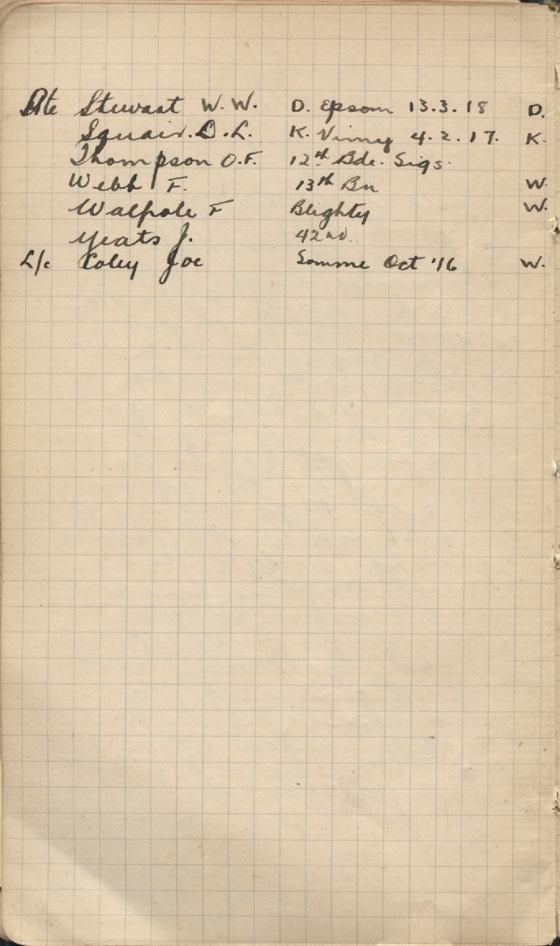 Pte Stewart W.W. D. Epsom 13.3.18 D.
Squair. D.L. K. Vimy 4.2.17. K.
Thompson O.F. 12th Bde. Sigs.
Webb F. 13th Bn W.
Walpole F Blighty W.
Yeats J. 42nd.
L/c Coley Joe Somme Oct '16 W.